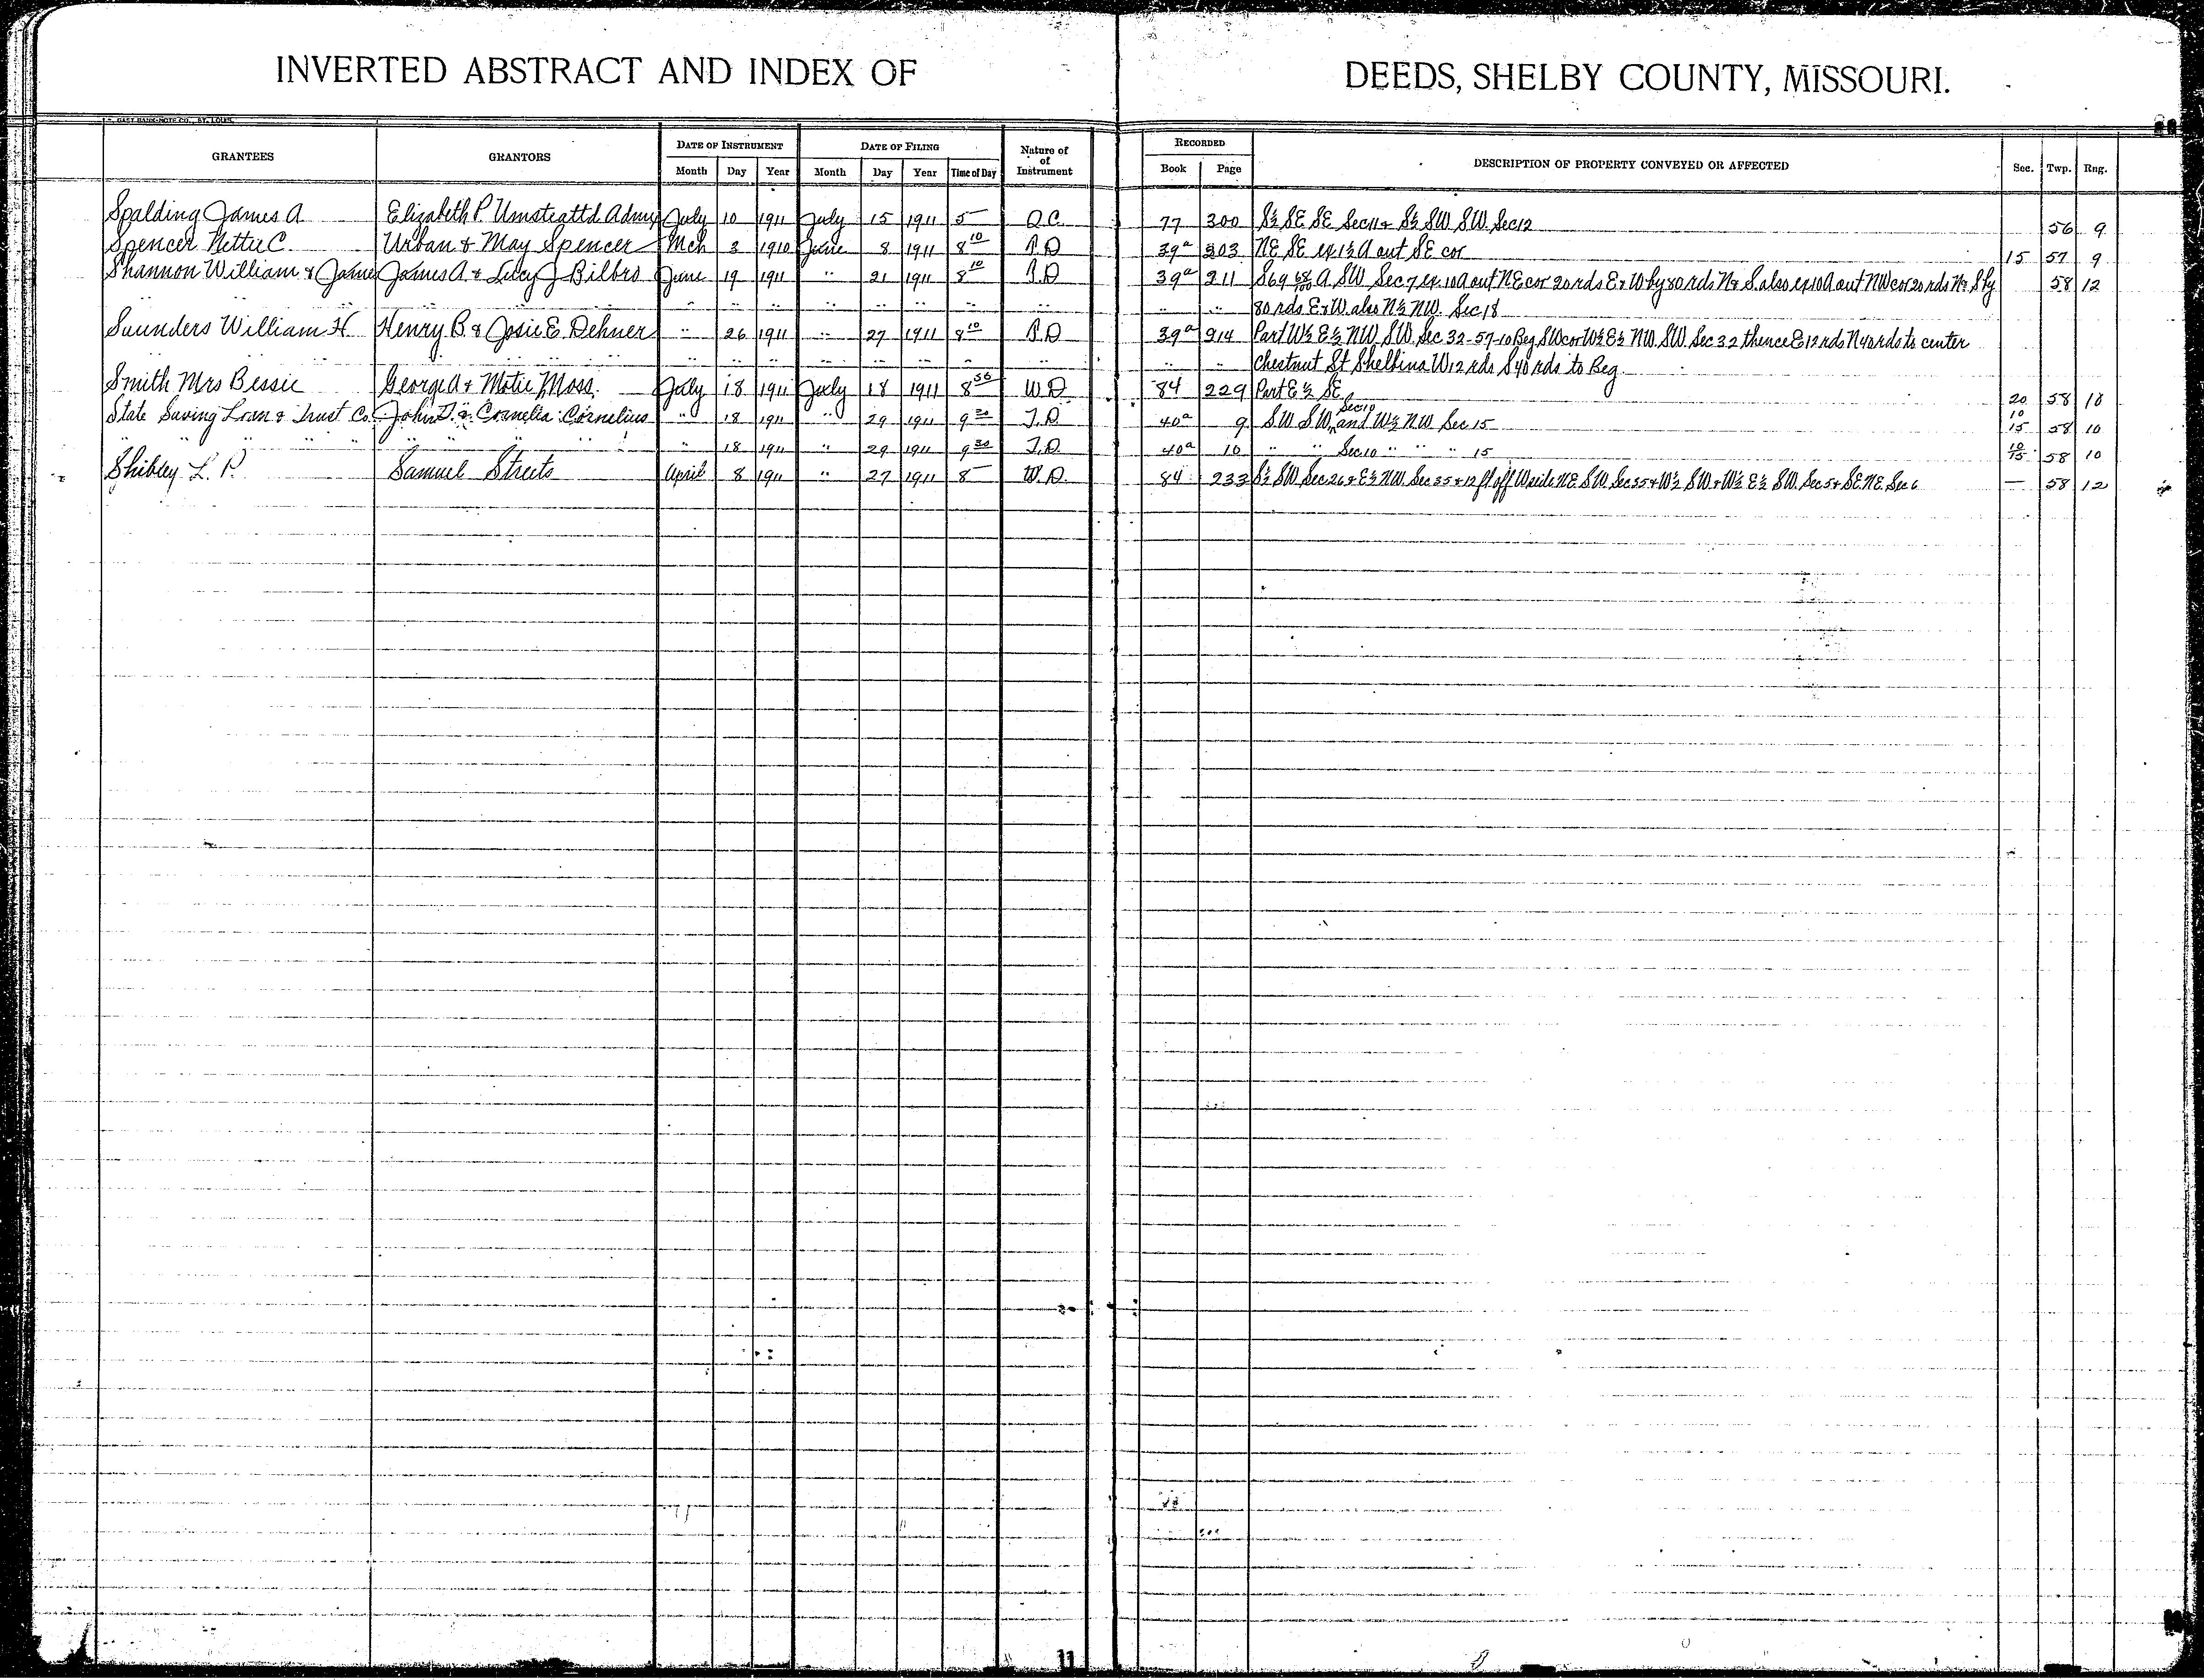 INVERTED ABSTRACT AND INDEX OF DEEDS, SHELBY COUNTY, MISSOURI.
GAST BANK-NOTE CO., ST. LOUIS.
GRANTEES GRANTORS DATE OF INSTRUMENT DATE OF FILING Nature of of Instrument RECORDED DESCRIPTION OF PROPERTY CONVEYED OR AFFECTED Sec. Twp. Rng.
Month Day Year Month Day Year Time of Day Book Page
Spalding James A Elizabeth P. Umsteattd Admx July 10 1911 July 15 1911 5 Q.C. 77 300 S½ SE SE Sec 11 & S½ SW SW Sec 12 56 9
Spencer Nettie C. Urban & May Spencer Mch 3 1910 June 8 1911 8 10 R D 39a 303 NE SE ex 1½ A out SE cor 15 57 9
Shannon William & James James A. & Lucy J Bilbro June 19 1911 " 21 1911 8 10 R.D 39a 311 S 69 68/100 A SW Sec 7 ex 10 A out NE cor 20 rds E & W by 80 rds N & S also ex 10 A out NW cor 20 rds N & S by 58 12
" " " " " " " " " " " " 80 rds E & W also N½ NW. Sec 18
Saunders William H. Henry B & Josie E. Dehner " 26 1911 " 27 1911 8 10 R D 39a 314 Part W½ E½ NW SW Sec 32-57-10 Beg SW cor W½ E½ NW SW Sec 32 thence E 12 rds N 40 rds to center
" " " " " " " " " " " " Chestnut St Shelbina W 12 rds S 40 rds to Beg.
Smith Mrs Bessie George A & Motie Moss. July 18 1911 July 18 1911 8 50 W D 84 229 Part E ½ SE 20 58 10
State Saving Loan & Trust Co. John T. & Cornelia Cornelius " 18 1911 " 29 1911 9 30 T.D. 40a 9 SW SW Sec 10 and W½ NW Sec 15 10 15 58 10
" " " " " " " " " " 18 1911 " 29 1911 9 30 T.D. 40a 10 " " Sec 10 " " " 15 10/15 58 10
Shibley L. P. Samuel Streets April 8 1911 " 27 1911 8 W.D. 84 233 S½ SW Sec 26 & E½ NW Sec 35 & 12 ft off W side NE SW Sec 35 & W½ SW & W½ E½ SW Sec 5 & SE NE Sec 6 — 58 12